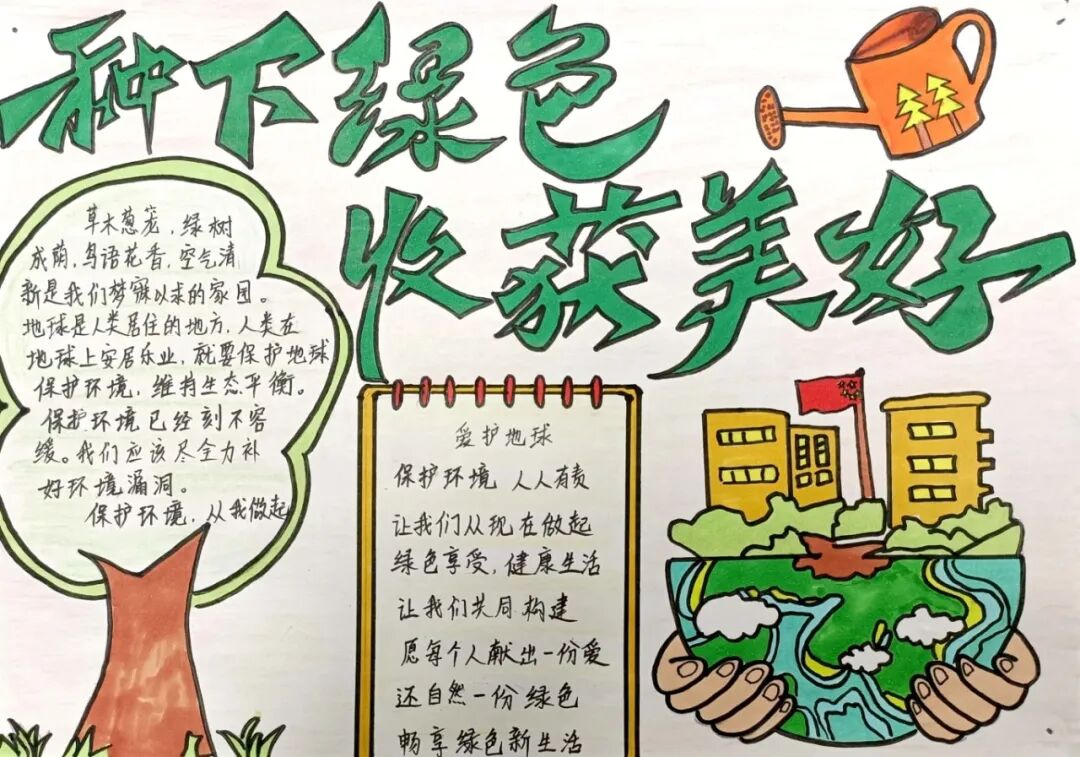 种下绿色
收获美好
草木葱茏，绿树
成荫，鸟语花香，空气清
新是我们梦寐以求的家园。
地球是人类居住的地方，人类在
地球上安居乐业，就要保护地球
保护环境，维持生态平衡。
保护环境已经刻不容
缓。我们应该尽全力补
好环境漏洞。
保护环境，从我做起
爱护地球
保护环境 人人有责
让我们从现在做起
绿色享受，健康生活
让我们共同构建
愿每个人献出一份爱
还自然一份绿色
畅享绿色新生活